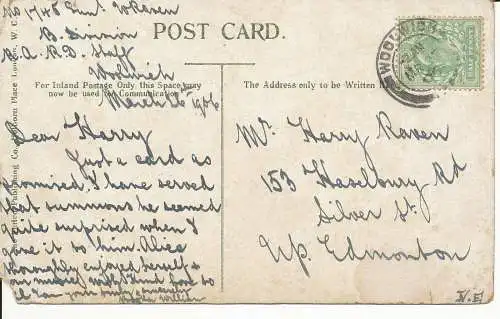 No 1748 Gunr W Raven
B. Division
R.A.R.D. Staff
Woolwich
March 26th 1906
POST CARD.
For Inland Postage Only this Space may
now be used for Communication.
The Address only to be Written
WOOLWICH
Dear Harry
Just a card as
promised. I have served
that summons he seemed
quite surprised when I
gave it to him. Alice
thoroughly enjoyed herself &
love to
all from your
William
Mr Harry Raven
153 Haselbury Rd
Silver St.
Up. Edmonton
N.E
Publishing Co.
Place London, W.C.